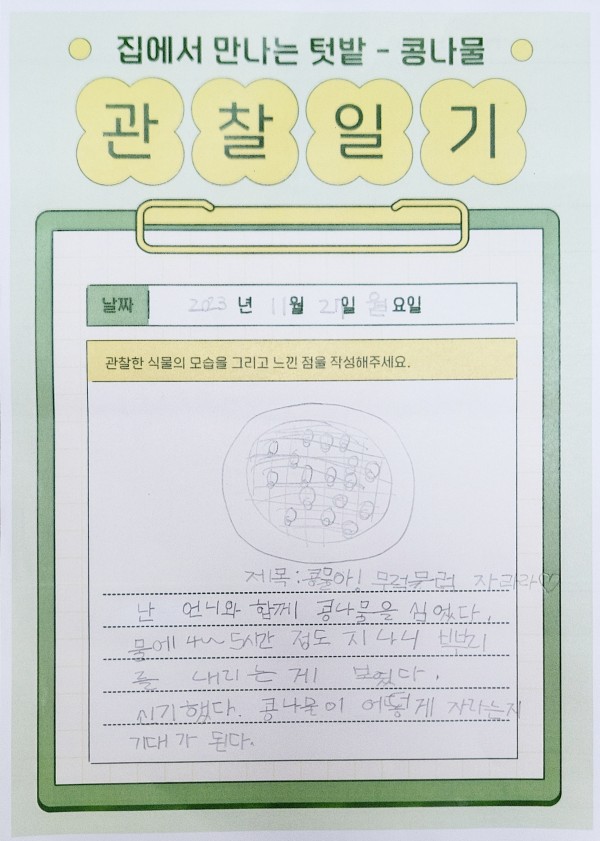 집에서 만나는 텃밭 - 콩나물
관찰일기
날짜 2023 년 11월 27일 월요일
관찰한 식물의 모습을 그리고 느낀 점을 작성해주세요.
제목 : 콩물아! 무럭무럭 자라라♡
난 언니와 함께 콩나물을 심었다.
물에 4~5시간 정도 지나니 뿌리
를 내리는 게 보였다.
시기했다. 콩나물이 어떻게 자라는지
기대가 된다.